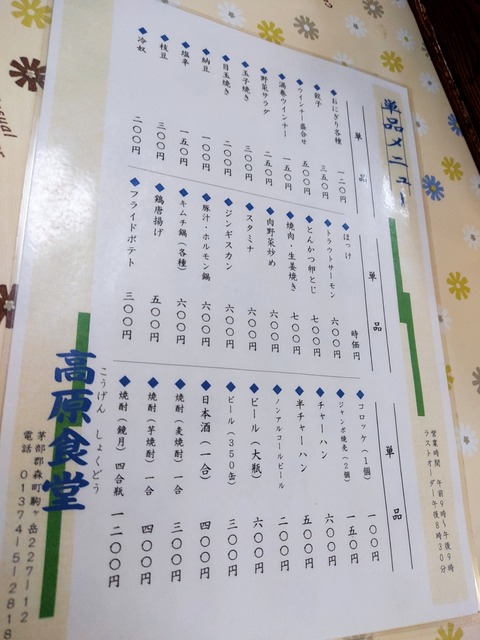 単品メニュー
単品
◆おにぎり各種 一二〇円
◆餃子 三五〇円
◆ウインナー盛合せ 五〇〇円
◆渦巻ウインナー 一五〇円
◆野菜サラダ 二五〇円
◆玉子焼き 三〇〇円
◆目玉焼き 二〇〇円
◆納豆 一〇〇円
◆塩辛 一五〇円
◆枝豆 三〇〇円
◆冷奴 二〇〇円
単品
◆ほっけ 時価円
◆トラウトサーモン 六〇〇円
◆とんかつ卵とじ 七〇〇円
◆焼肉・生姜焼き 七〇〇円
◆肉野菜炒め 六〇〇円
◆スタミナ 六〇〇円
◆ジンギスカン 六〇〇円
◆豚汁・ホルモン鍋 六〇〇円
◆キムチ鍋(各種) 六〇〇円
◆鶏唐揚げ 五〇〇円
◆フライドポテト 三〇〇円
単品
◆コロッケ(1個) 一〇〇円
◆ジャンボ焼売(2個) 一五〇円
◆チャーハン 六〇〇円
◆半チャーハン 五〇〇円
◆ノンアルコールビール 二〇〇円
◆ビール(大瓶) 六〇〇円
◆ビール(350缶) 三〇〇円
◆日本酒(一合) 四〇〇円
◆焼酎(麦焼酎)一合 三〇〇円
◆焼酎(芋焼酎)一合 四〇〇円
◆焼酎(鏡月)四合瓶 一二〇〇円
営業時間 午前9時~午後9時
ラストオーダー午後8時30分
こうげん しょくどう
高原食堂
茅部郡森町駒ヶ岳227-12
電話 01374-5-2818